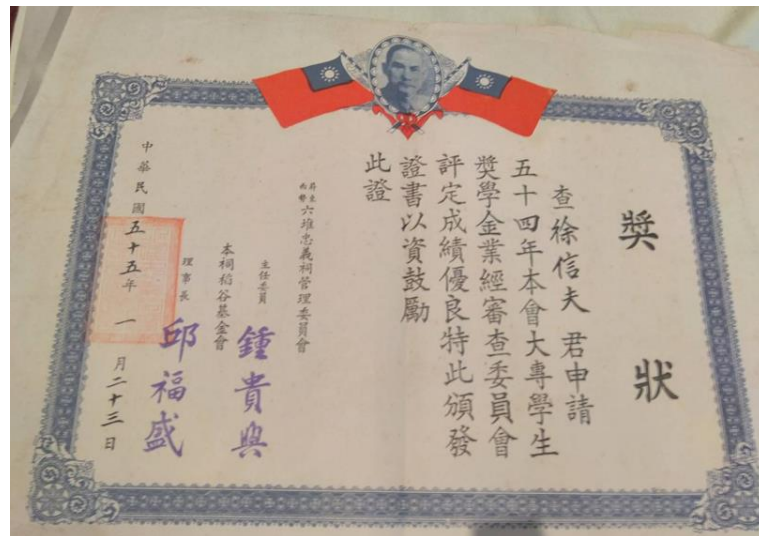 獎狀
查徐信夫君申請
五十四年本會大專學生
獎學金業經審查委員會
評定成績優良特此頒發
證書以資鼓勵
此證
屏東西勢六堆忠義祠管理委員會
主任委員 鍾貴興
本祠稻谷基金會
理事長 邱福盛
中華民國五十五年一月二十三日